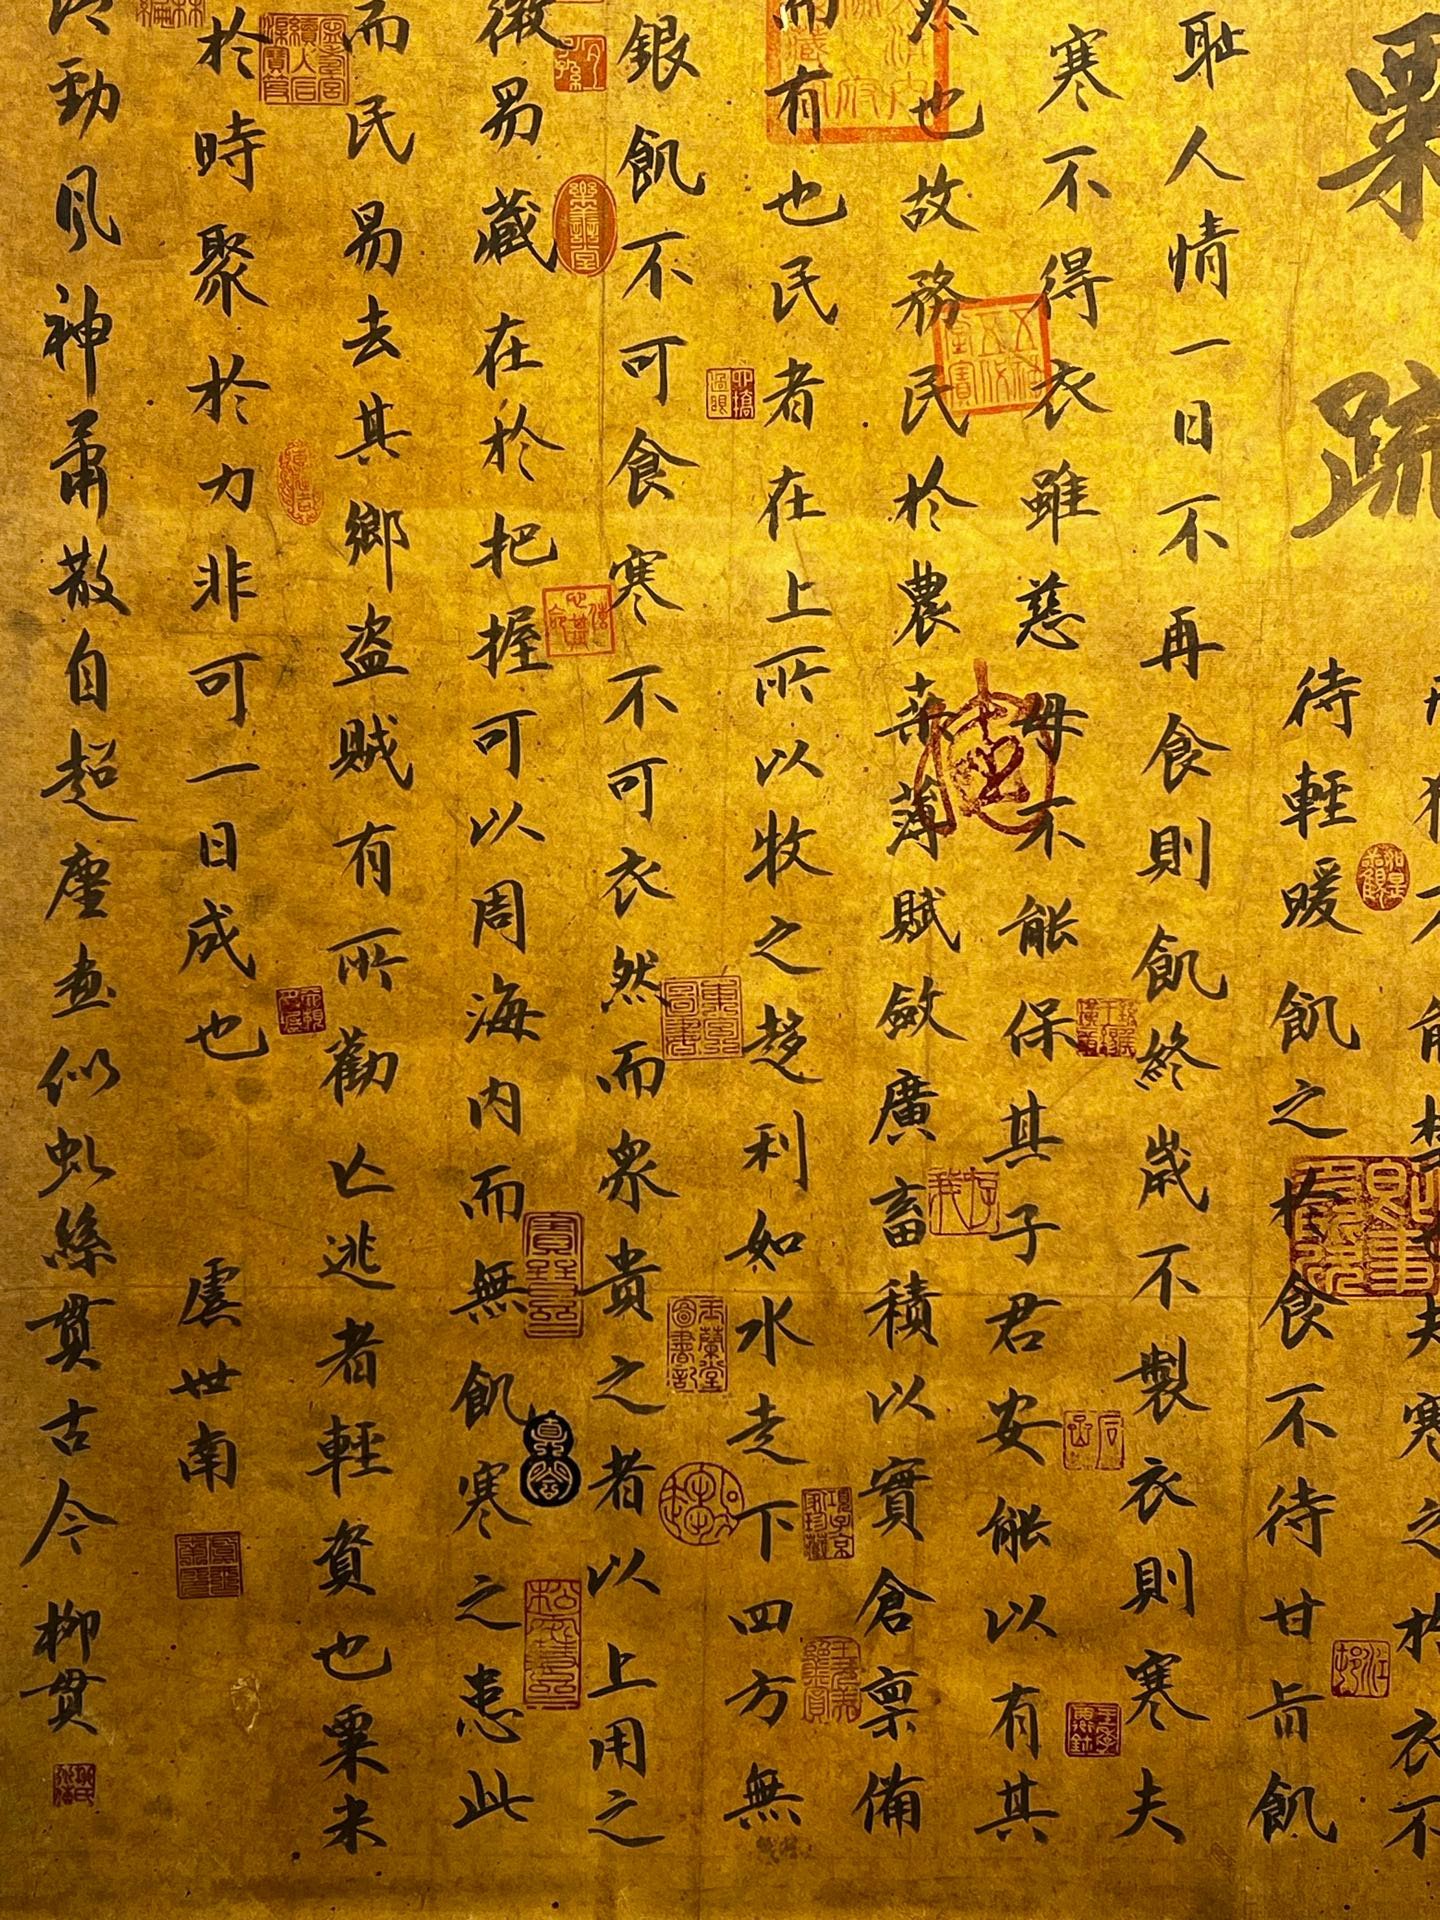 粟疏
不
寒之於衣不
待輕暖飢之於食不待甘旨飢
耻人情一日不再食則飢終歲不製衣則寒夫
寒不得衣雖慈母不能保其子君安能以有其
也故務民於農桒薄賦斂廣畜積以實倉禀備
而有也民者在上所以牧之趍利如水走下四方無
銀飢不可食寒不可衣然而衆貴之者以上用之
微易藏在於把握可以周海内而無飢寒之患此
而民易去其鄉盗賊有所勸亡逃者輕資也粟米
於時聚於力非可一日成也 虞世南
勁風神蕭散自超塵畫似虬絲貫古今 柳貫